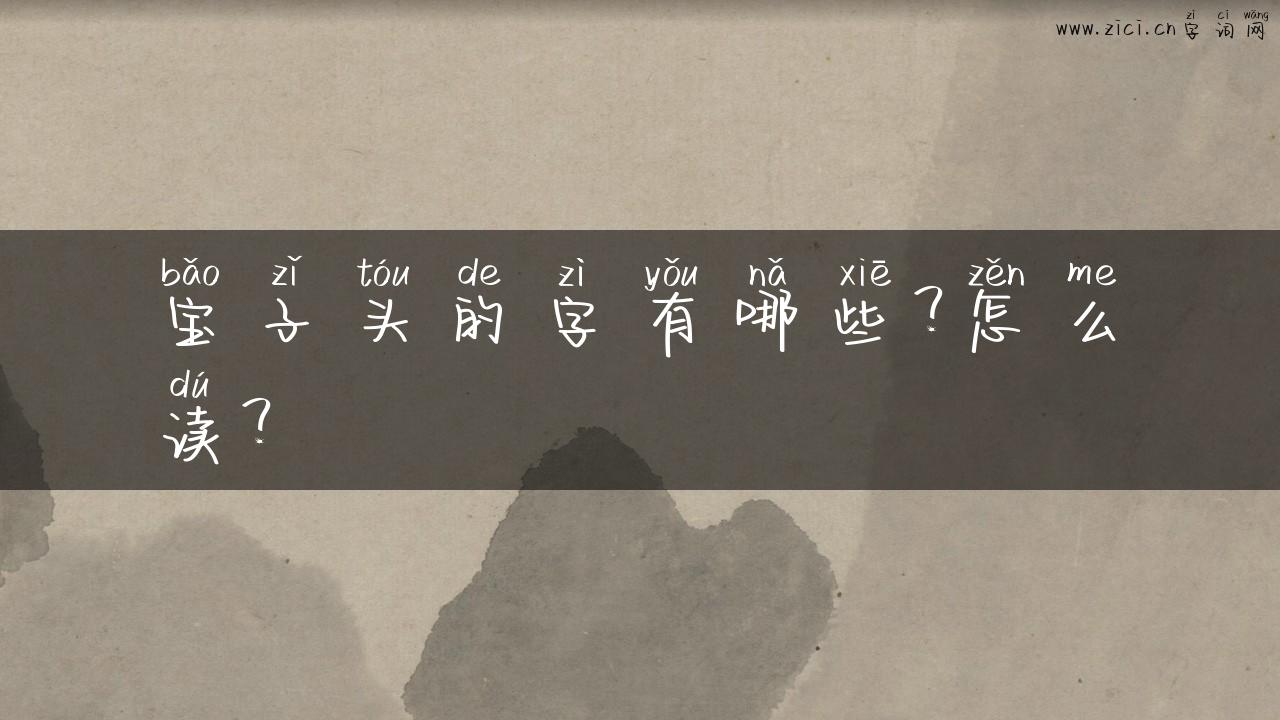 zì cí wǎng
www.zici.cn字词网
bǎo zǐ tóu de zì yǒu nǎ xiē zěn me
宝子头的字有哪些？怎么
dú
读？